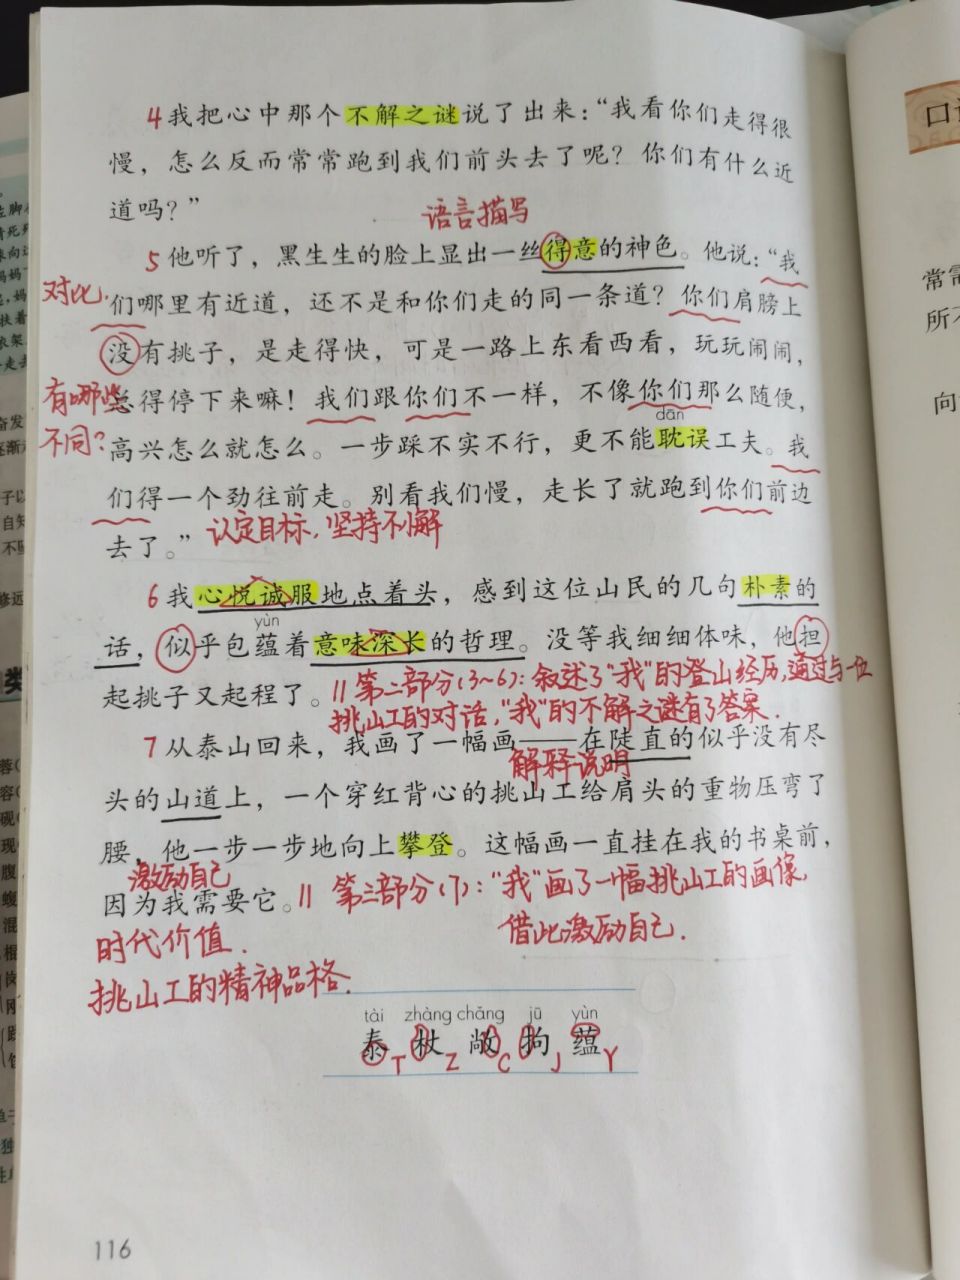 4我把心中那个不解之谜说了出来：“我看你们走得很
慢，怎么反而常常跑到我们前头去了呢？你们有什么近
道吗？”
语言描写
5他听了，黑生生的脸上显出一丝得意的神色。他说：“我
对比.
们哪里有近道，还不是和你们走的同一条道？你们肩膀上
没有挑子，是走得快，可是一路上东看西看，玩玩闹闹，
有哪些
总得停下来嘛！我们跟你们不一样，不像你们那么随便，
dān
不同？
高兴怎么就怎么。一步踩不实不行，更不能耽误工夫。我
们得一个劲往前走。别看我们慢，走长了就跑到你们前边
去了。”
认定目标，坚持不懈
6我心悦诚服地点着头，感到这位山民的几句朴素的
yùn
话，似乎包蕴着意味深长的哲理。没等我细细体味，他担
起挑子又起程了。
// 第二部分(3~6)：叙述了“我”的登山经历，通过与一位
挑山工的对话，“我”的不解之谜有了答案.
7从泰山回来，我画了一幅画——在陡直的似乎没有尽
解释说明
头的山道上，一个穿红背心的挑山工给肩头的重物压弯了
腰，他一步一步地向上攀登。这幅画一直挂在我的书桌前，
激励自己
因为我需要它。
// 第三部分(7)：“我”画了一幅挑山工的画像，
借此激励自己.
时代价值.
挑山工的精神品格.
tài zhàng chǎng jū yùn
泰 杖 敞 拘 蕴
T Z C J Y
116
口
常需
所不
向